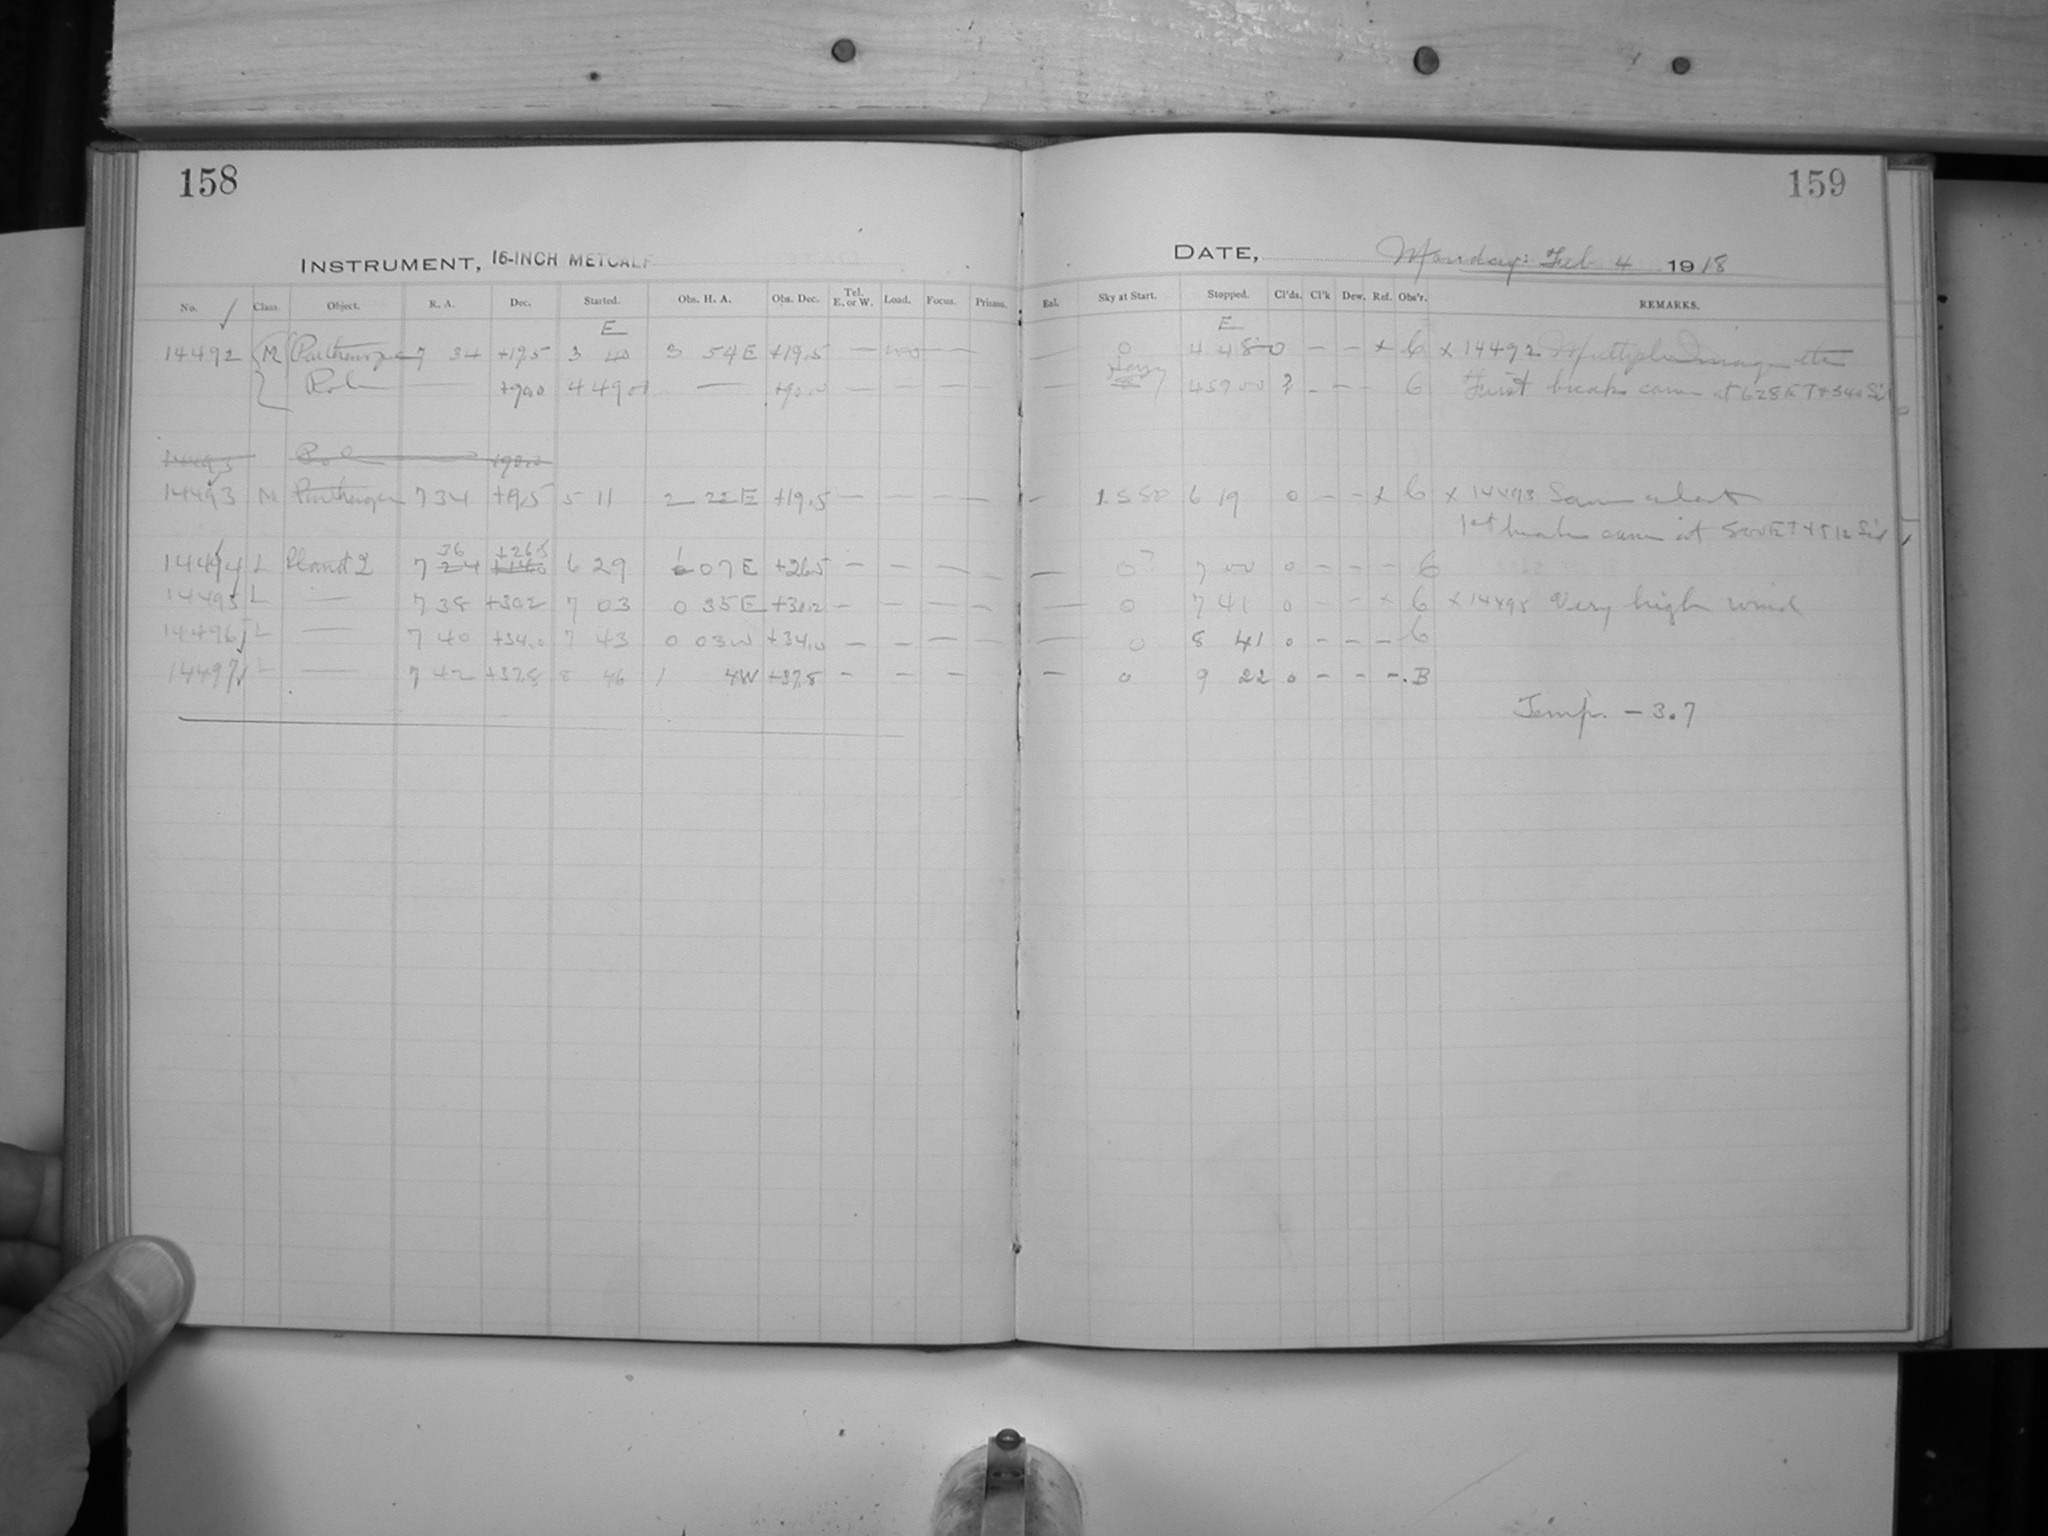 158
159
INSTRUMENT, 16-INCH METCALF
DATE, Monday: Feb 4 1918
No. Class. Object. R. A. Dec. Started. Obs. H. A. Obs. Dec. Tel. E. or W. Load. Focus. Prisms. Sky at Start. Stopped. Cl'ds. Cl'k Dew. Ref. Obs'r. REMARKS.
E E
14492 M Parthenope 7 34 +19.5 3 40 3 54 E +19.5 — — — 0 4 48 0 – – x 6 x 14492 Multiple Images etc
Pole — +90.0 4 49 0 — +90.0 — — — — Hazy 4 59 00 ? – – – 6 First break came at 6 28 E T
14493 Pole +90.0
14493 M Parthenope 7 34 +19.5 5 11 2 22 E +19.5 — — — — – 6 19 0 – – x 6 x 14493 Same
1st break came at
36 +26.5 1
14494 L Planet 2 7 24 6 29 0 07 E +26.5 – – – – — 0 7 00 0 – – – 6
14495 L — 7 38 +30.2 7 03 0 35 E +30.2 – – – – — 0 7 41 0 – – x 6 x 14495 Very high wind
14496 L — 7 40 +34.0 7 43 0 03 W +34.0 – – – – — 0 8 41 0 – – – 6
14497 L — 7 42 +37.8 8 46 1 4 W +37.8 – – – — 0 9 22 0 – – – B
Temp. – 3.7